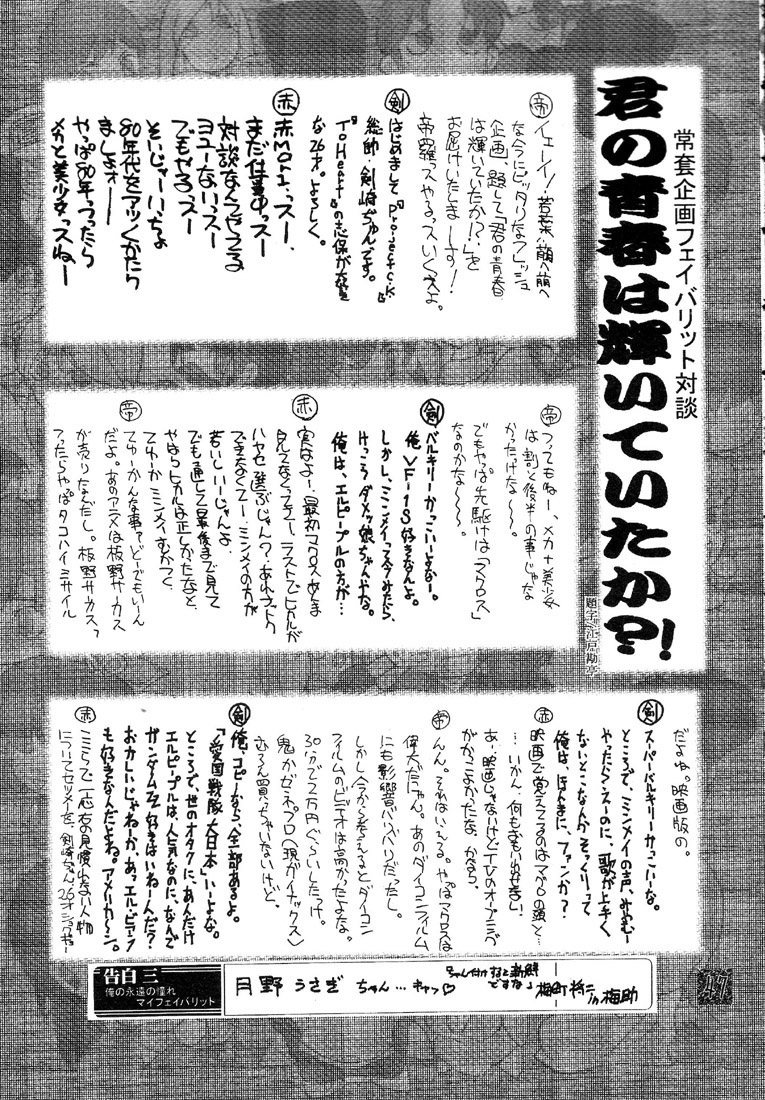 常套企画フェイバリット対談
君の青春は輝いていたか?!
題字☆江戸勘亭
帝
イェーイ!若葉萌へ萌へ
な今にピッタリなフレッシュ
企画、題して『君の青春
は輝いていたか!?』を
お届けいたしまーす!
帝羅ッスやるッスいくスよ。
剣
はじめまして『Project.K』
総帥・剣崎ぢゅんです。
『ToHeart』の志保が大好き
な26才。よろしく。
赤
赤Moriっスー、
まだ仕事中っスー
対談なんてやってる
ヨユーないっスー
でもやるっスー
そいじゃーいっちょ
80年代をアツくかたり
ましょォー
やっぱ80年つったら
メカと美少女っスねー
帝
つってもねー、メカ+美少女
は割と後半の事じゃな
かったけな〜〜。
でもやっぱ先駆けは『マクロス』
なのかな〜〜〜。
剣
バルキリーかっこいーよなー。
俺、VF-1S好きなんよ。
しかし、ミンメイって今みたら、
けっこうダメッ娘ちゃんやな。
俺は、エルピープルの方が…
赤
実はよー、最初マクロスあま
見てなくってよー、ラストでヒカルが
ハヤセ選ぶじゃん?あれナットク
できなくてー、ミンメイの方が
若いしいーじゃんよ
でも通して最後まで見て
やはりヒカルは正しかったなと、
てゆーかミンメイ、むかつく。
帝
てゆーかんな事てどーでもいーん
だよ。あのアニメは板野サーカス
が売りなんだし。板野サーカス、っ
つったらやっぱタコハイミサイル
だよね。映画版の。
剣
スーパーバルキリーかっこいーな。
ところで、ミンメイの声、みやむー
やったらえーのに、歌が上手く
ないとこなんかそっくりって
俺は、ほんまに、ファンか?
赤
映画で覚えてるのはマクロの頭と…
…いかん、何もおもい出せない
あー映画じゃないけどTVのオープニング
がかっこよかったな、かなり。
帝
んん。それはいえる。やっぱマクロスは
偉大だなん。あのダイコンフィルム
にも影響バリバリだったし。
しかし今から考えるとダイコン
フィルムのビデオは高かったよなァ。
30分で2万円ぐらいしたっけ。
鬼かゼネプロ(現ガイナックス)
もちろん買っちゃいないけど。
剣
俺、コピーなら、全部あるよ。
「愛国戦隊大日本」いーよな。
ところで、世のオタクに、あんだけ
エルピープルは、人気なのに、なんで
ガンダムZZ好きはいねーんだ?
おかしいじゃねーか。あっ、エル・ビアンノ
も好きなんだよね。アメリカ〜ン。
赤
ここらで一応右の見慣れない人物
についてセツメーを、剣崎ぢゅん26才
告白三
俺の永遠の憧れ
マイフェイバリット
月野うさぎちゃん…キャン♡
ちゃん付けすると新鮮
ですなょ